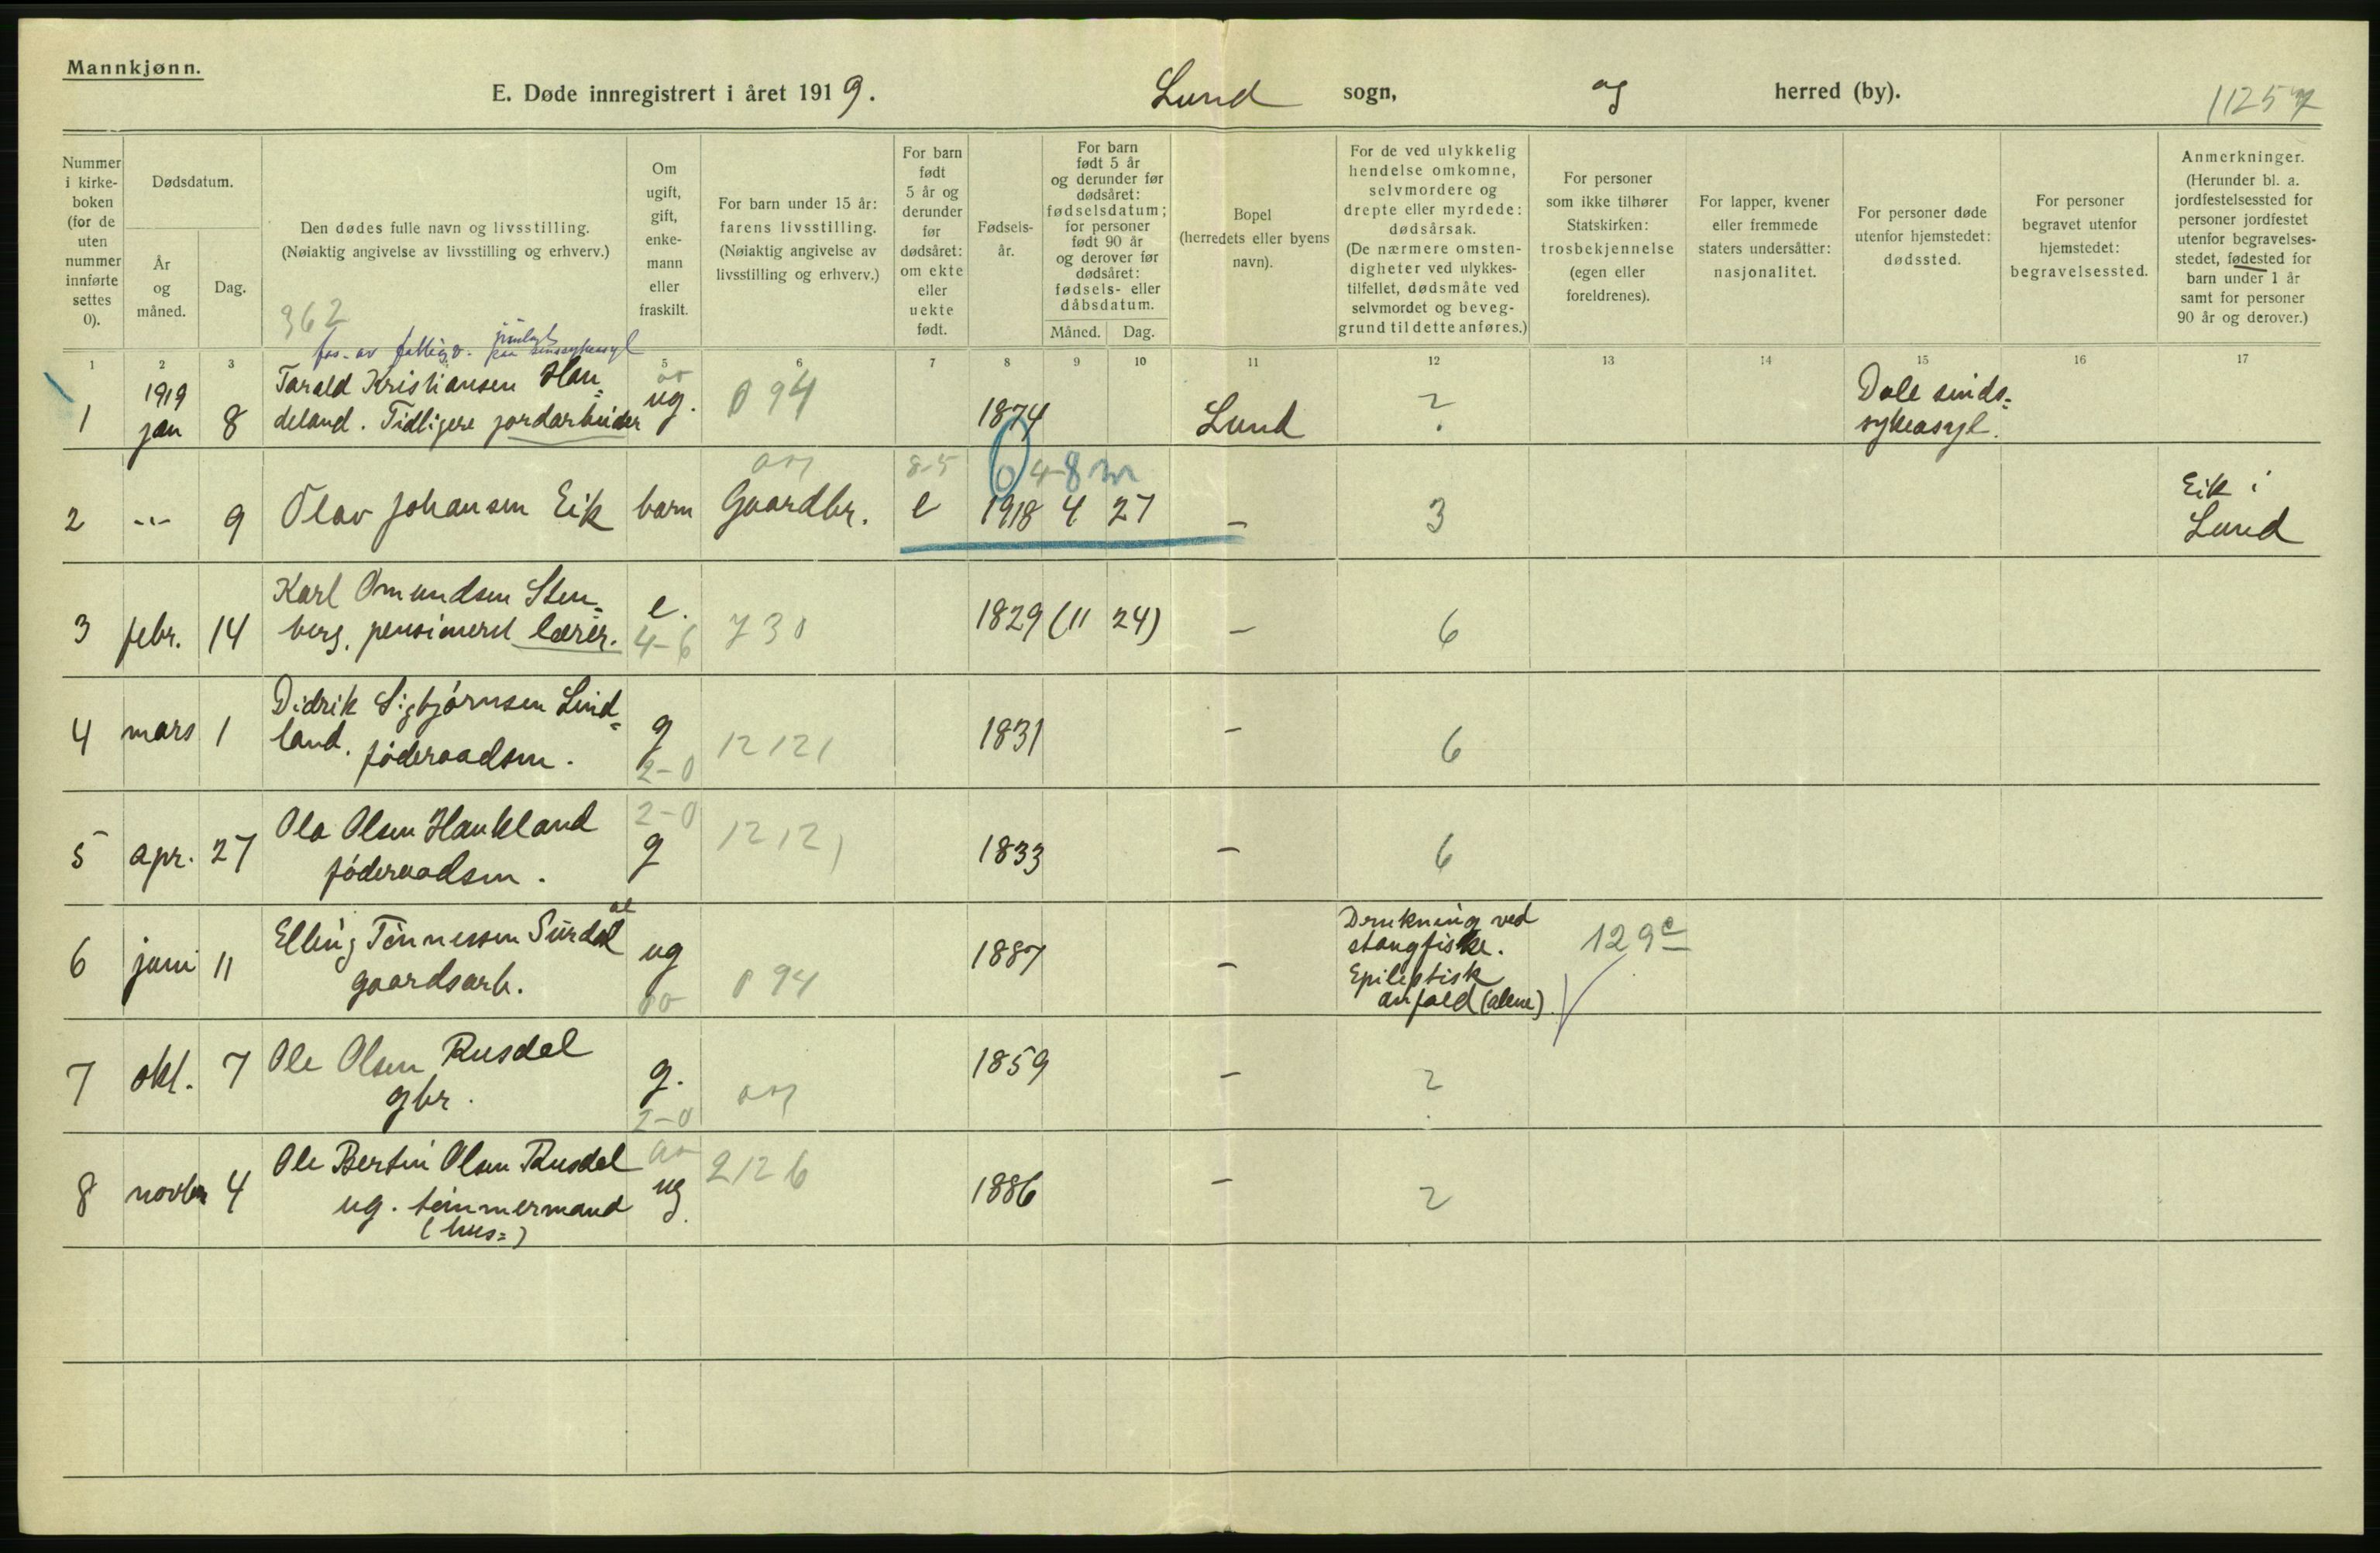 Mannkjønn.
E. Døde innregistrert i året 1919. Lund sogn, og herred (by).
1125
Nummer i kirke- boken (for de uten nummer innførte settes 0).
Dødsdatum.
År og måned.
Dag.
Den dødes fulle navn og livsstilling.
(Nøiaktig angivelse av livsstilling og erhverv.)
362
Om ugift, gift, enke- mann eller fraskilt.
For barn under 15 år:
farens livsstilling.
(Nøiaktig angivelse av livsstilling og erhverv.)
For barn født 5 år og derunder før dødsåret: om ekte eller uekte født.
Fødsels- år.
For barn født 5 år og derunder før dødsåret: fødselsdatum; for personer født 90 år og derover før dødsåret: fødsels- eller dåbsdatum.
Måned. Dag.
Bopel
(herredets eller byens navn).
For de ved ulykkelig hendelse omkomne, selvmordere og drepte eller myrdede: dødsårsak.
(De nærmere omsten- digheter ved ulykkes- tilfellet, dødsmåte ved selvmordet og beveg- grund til dette anføres.)
For personer som ikke tilhører Statskirken: trosbekjennelse (egen eller foreldrenes).
For lapper, kvener eller fremmede staters undersåtter: nasjonalitet.
For personer døde utenfor hjemstedet: dødssted.
For personer begravet utenfor hjemstedet: begravelsessted.
Anmerkninger.
(Herunder bl. a. jordfestelsessted for personer jordfestet utenfor begravelses- stedet, fødested for barn under 1 år samt for personer 90 år og derover.)
1 2 3 5 6 7 8 9 10 11 12 13 14 15 16 17
fors. av fattigv.
1 1919 jan 8 Tarald Kristiansen Hau= deland. Tidligere jordarbeider ug. 094 1874 Lund ? Dale sinds= sykeasyl.
8-5 0 4-8 m
2 -"- 9 Olav Johansen Eik barn Gaardbr. e 1918 4 27 – 3 Eik i Lund
3 febr. 14 Karl Omundsen Sten= berg. pensioneret lærer. e. 4-6 730 1829 (11 24) – 6
4 mars 1 Didrik Sigbjørnsen Lind= land. føderaadsm. g 2-0 12121 1831 – 6
5 apr. 27 Ola Olsen Haukland føderaadsm. 2-0 g 12121 1833 – 6
6 juni 11 Elling Tønnessen Surdal gaardsarb. ug 094 1887 – Drukning ved stangfiske. Epileptisk anfald (alene). 129c
7 okt. 7 Ole Olsen Rusdal gbr. g. 2-0 1859 – ?
8 novbr 4 Ole Bertin Olsen Rusdal ug. tømmermand (hus=) ug. 2126 1886 – 2